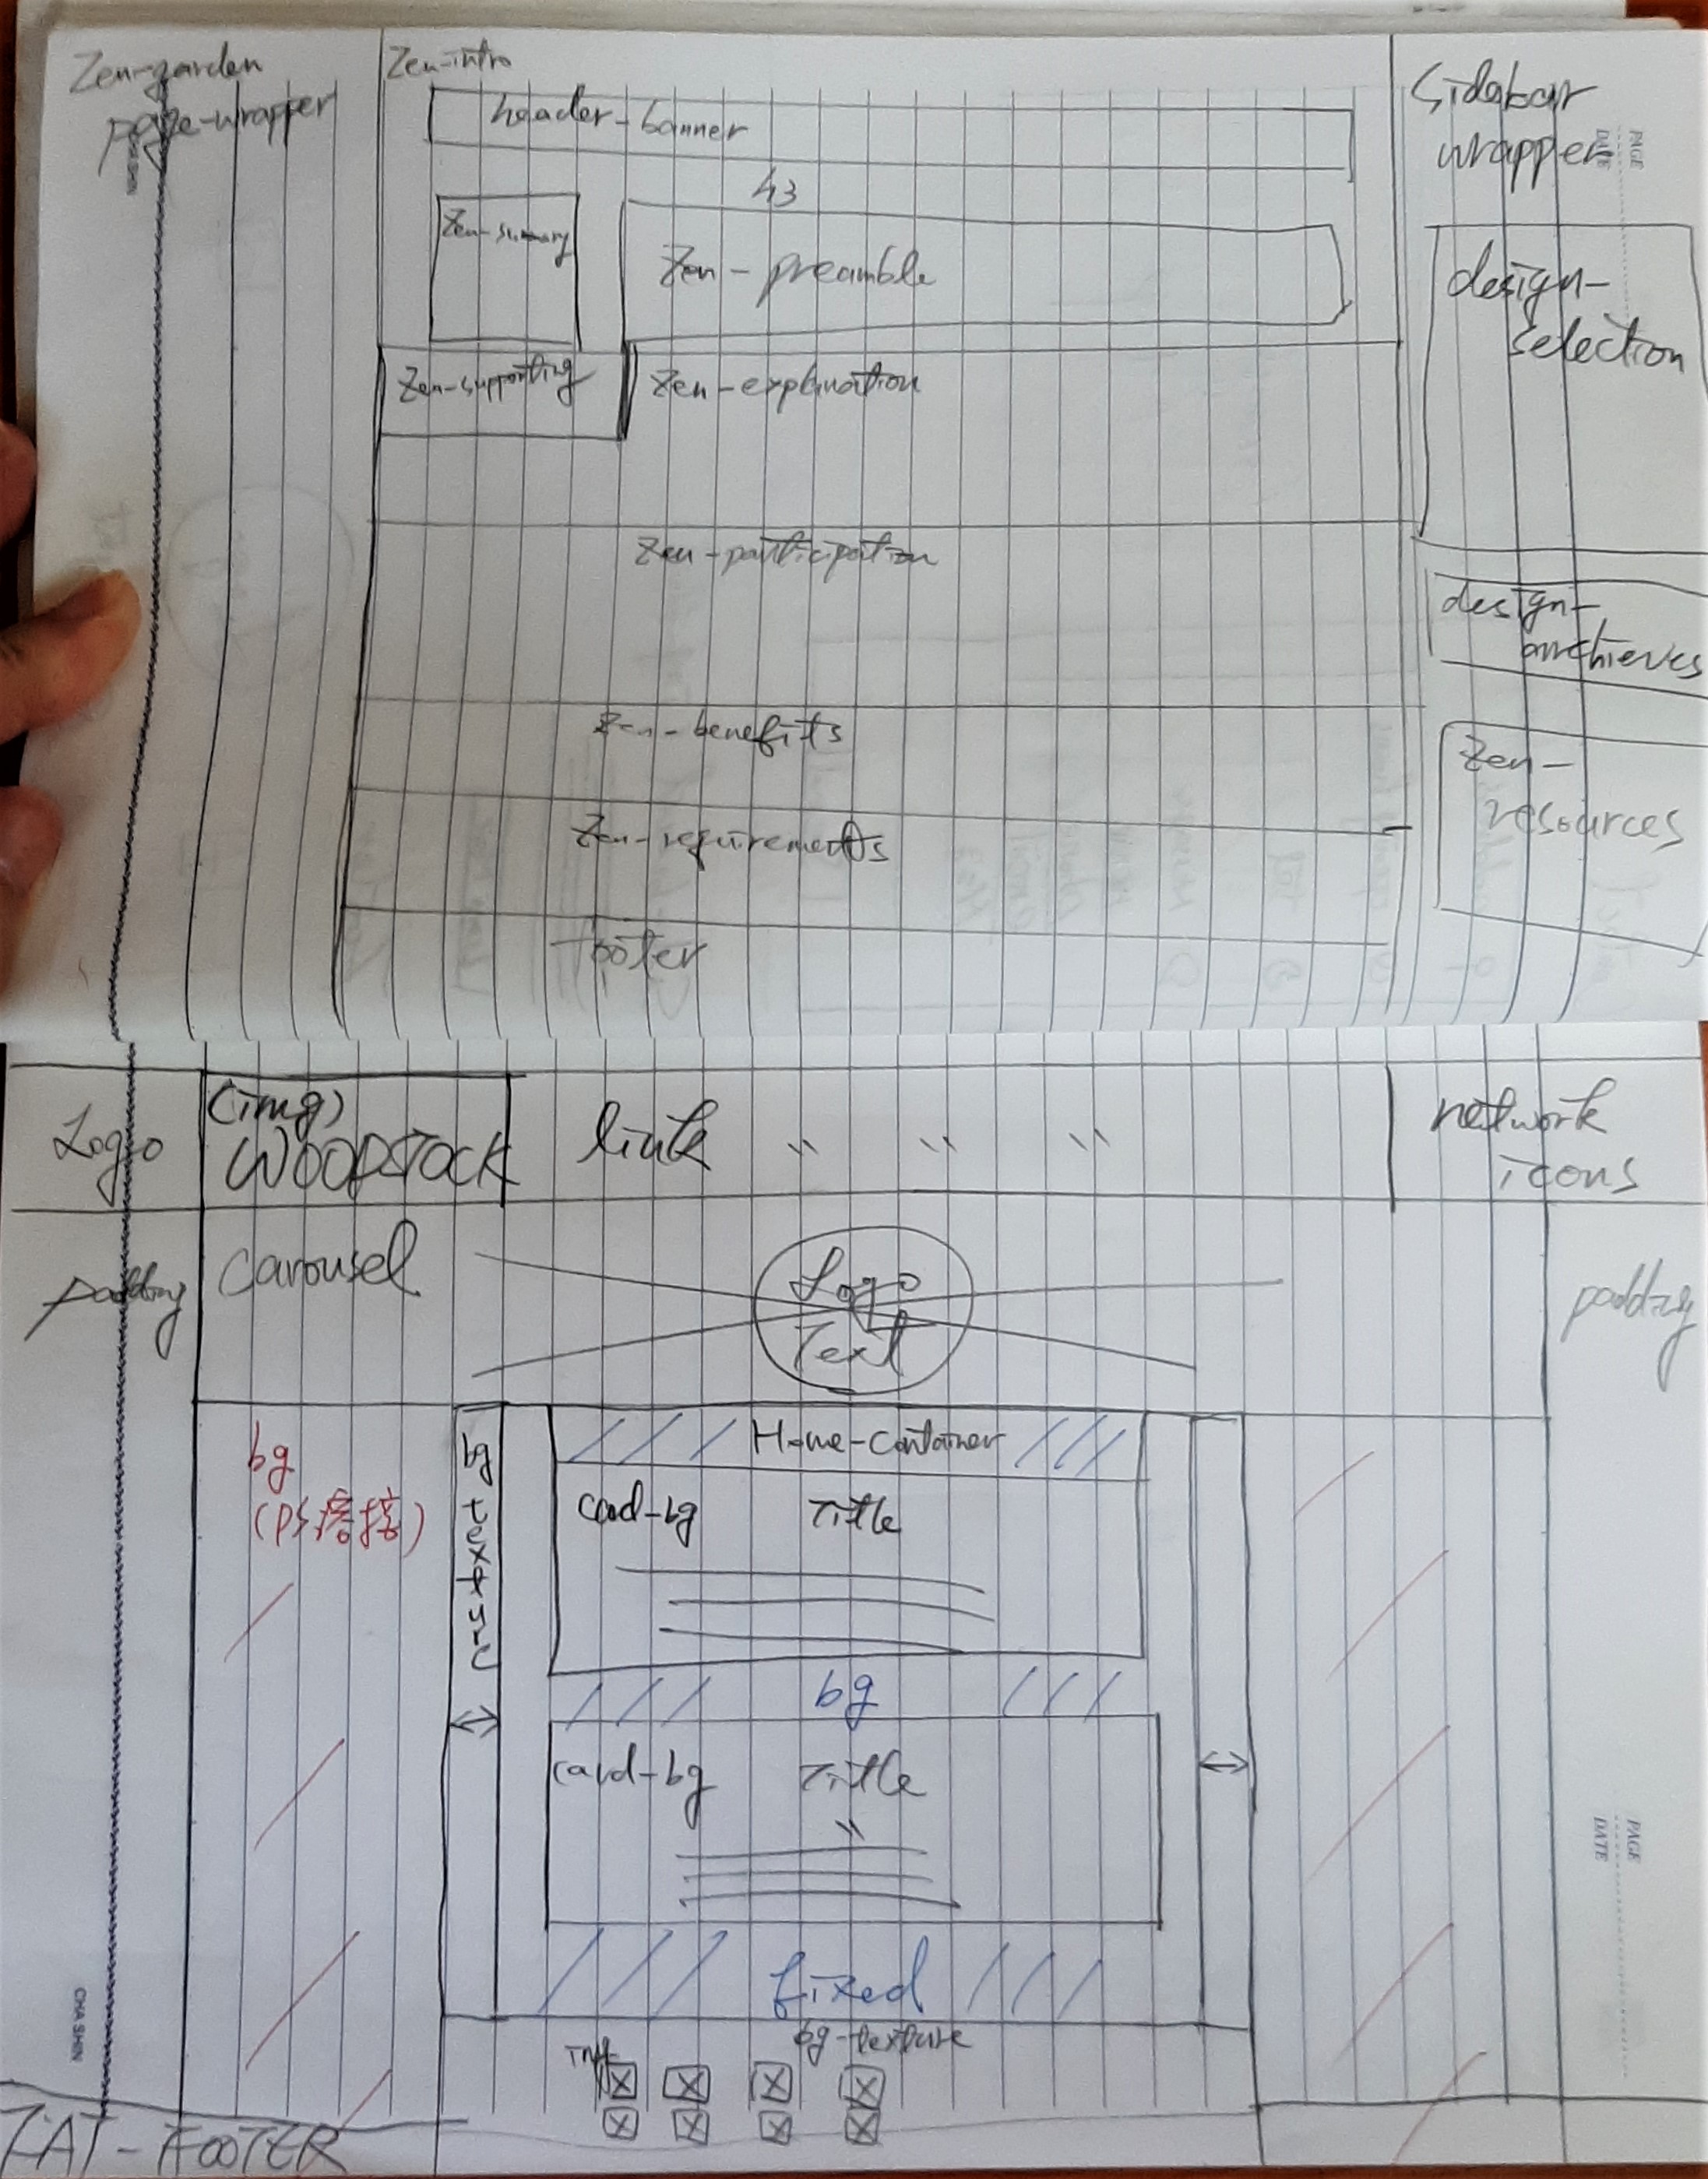 Zen-garden
page-wrapper
Zen-intro
header-banner
h3
Zen-summary
Zen-preamble
Zen-supporting
Zen-explanation
Zen-participation
Zen-benefits
Zen-requirements
footer
Sidebar
wrapper
PAGE
DATE
design-
selection
design-
archieves
Zen-
resources
Logo
(img)
WOODSTOCK
link
" " "
network
icons
padding
Carousel
Logo
Text
padding
bg
bg texture
Home-Container
card-bg
Title
bg
card-bg
Title
"
fixed
bg-texture
img
FAT-FOOTER
PAGE
DATE
CHA SHIN